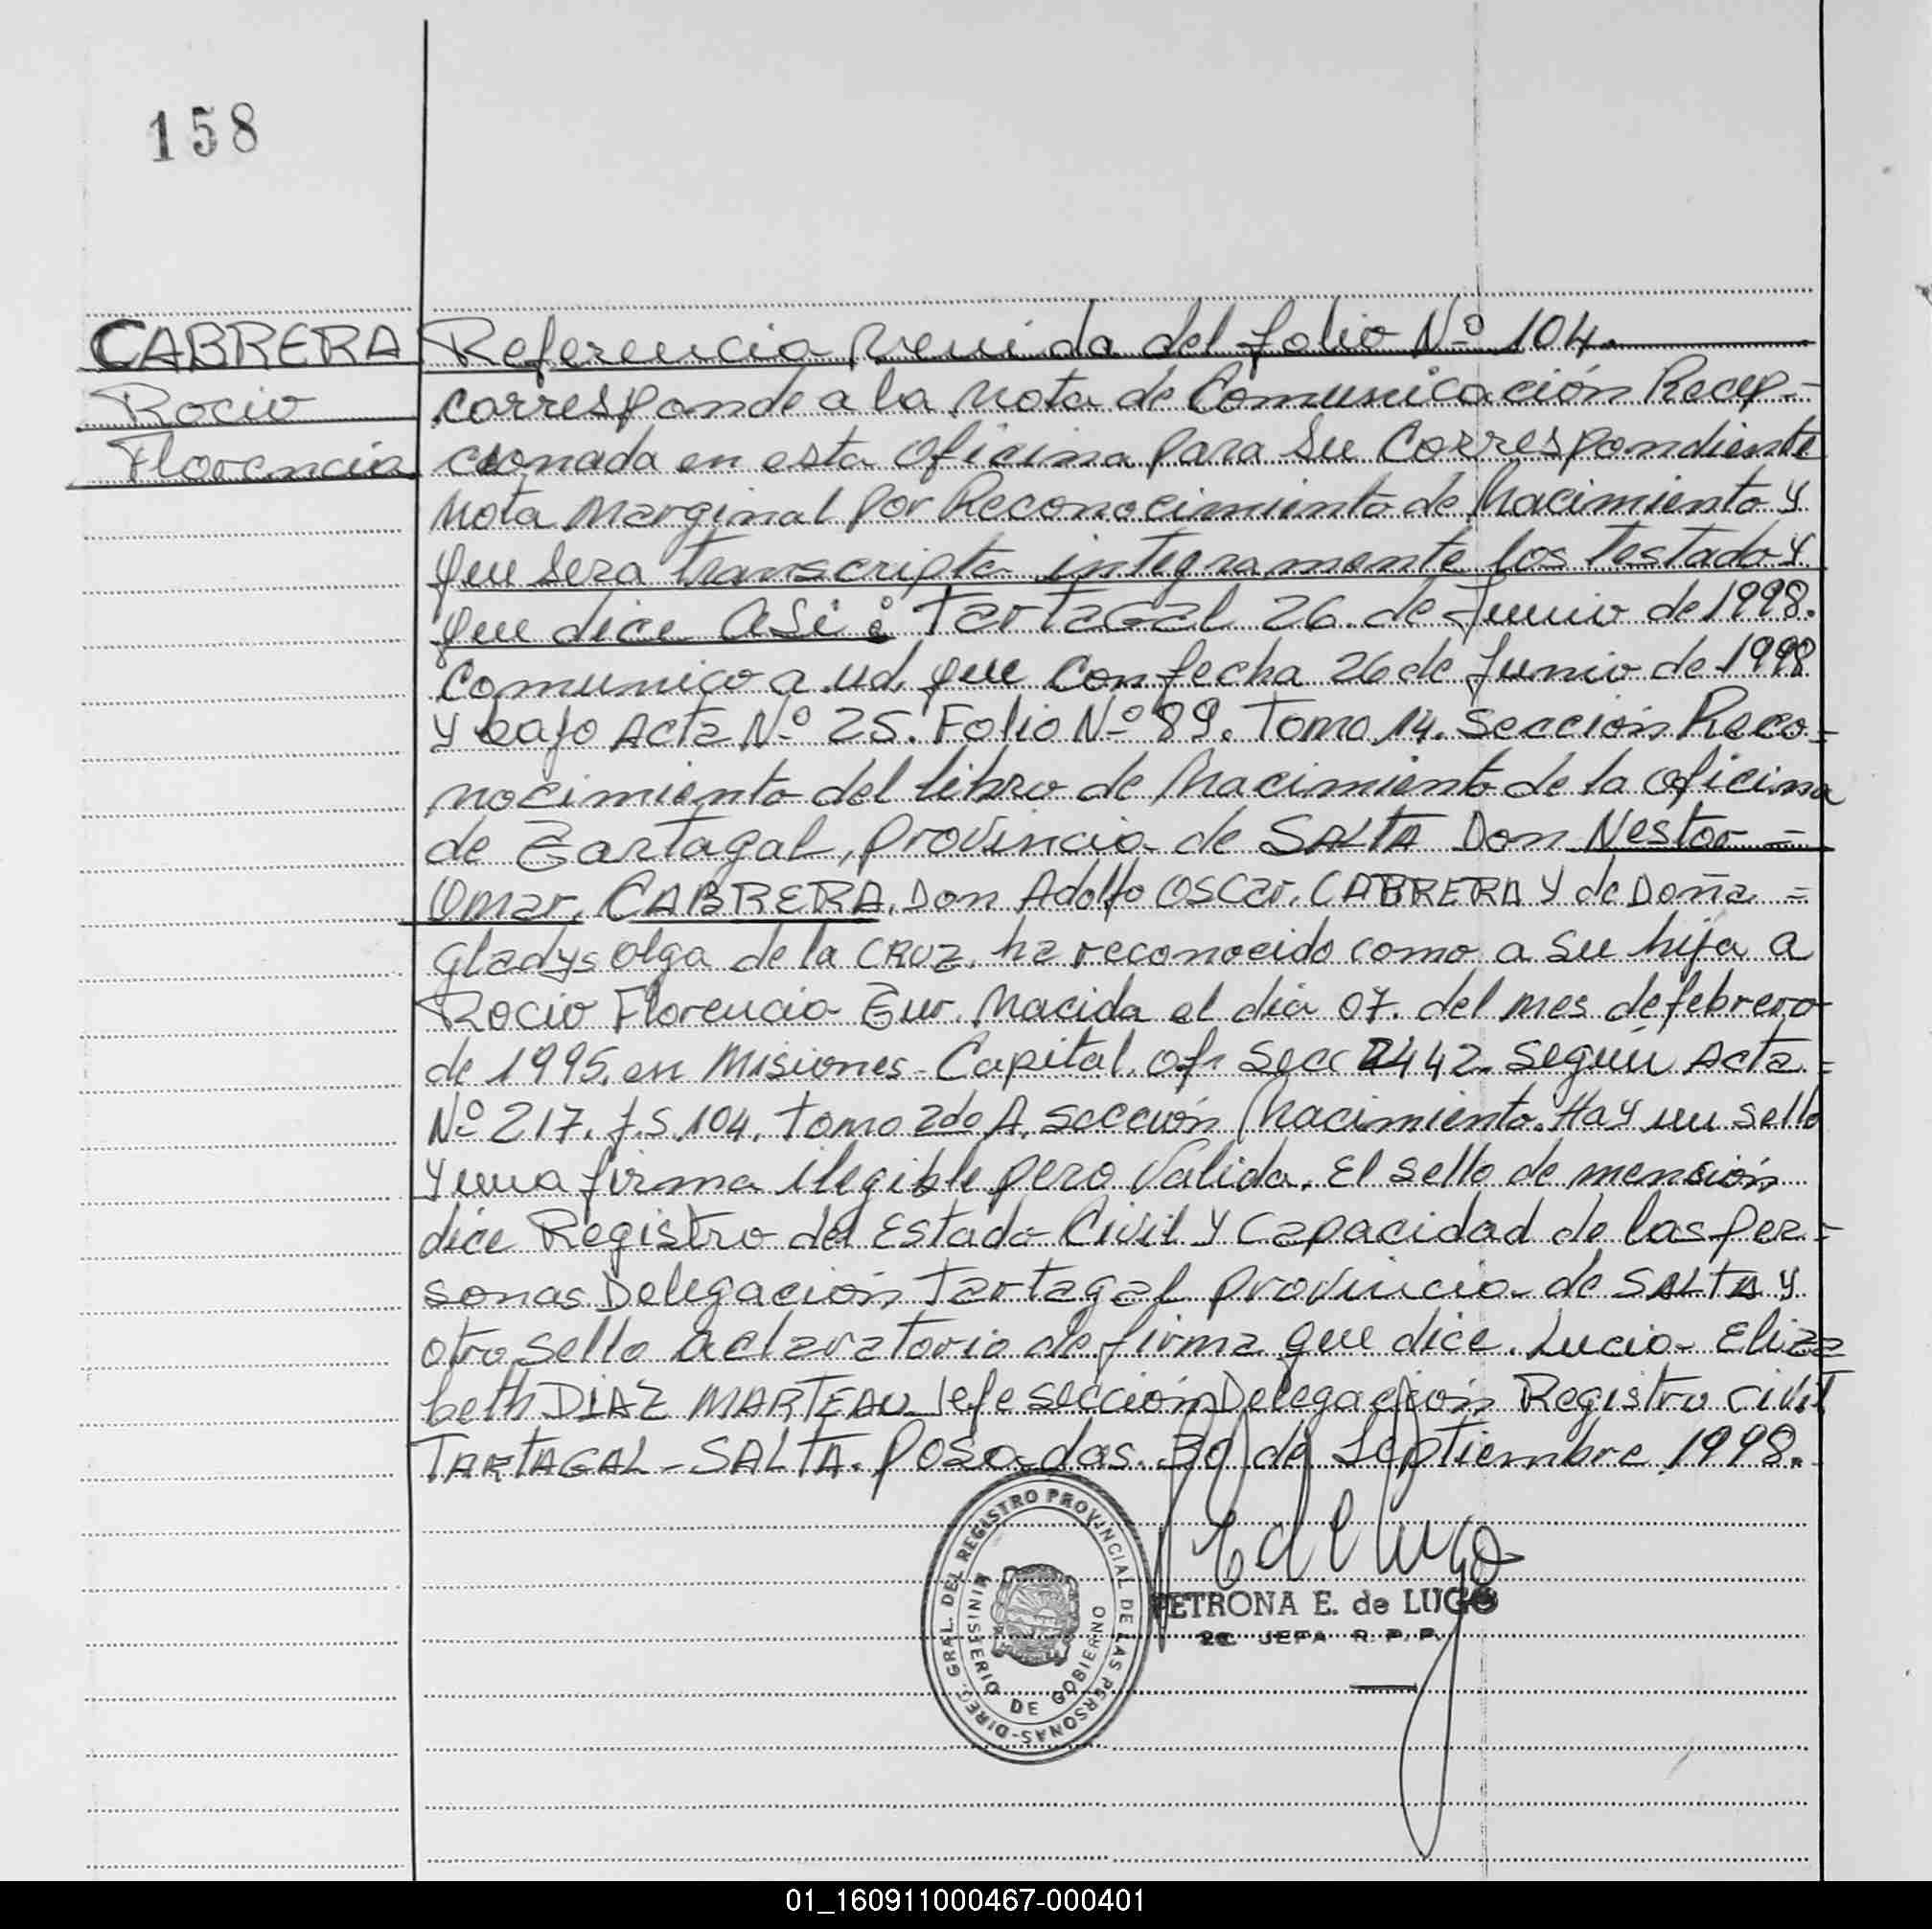 158
CABRERA
Rocio
Florencia
Referencia venida del folio Nº 104.
corresponde a la Nota de Comunicación Recep-
cionada en esta oficina para su Correspondiente
Nota Marginal por Reconocimiento de Nacimiento y
que sera transcripta integramente los Testado y
que dice asi: Tartagal 26 de Junio de 1998.
Comunico a ud. que con fecha 26 de Junio de 1998
y bajo Acta Nº 25. Folio Nº 89. Tomo 14. Sección Reco=
nocimiento del libro de Nacimiento de la oficina
de Tartagal, provincia de SALTA Don Nestor =
Omar, CABRERA, Don Adolfo Oscar. CABRERA y de Doña =
Gladys Olga de la CRUZ. ha reconocido como a su hija a
Rocio Florencia Nacida el dia 07. del mes de febrero
de 1995. en Misiones - Capital. of. Secc 2442. según Acta =
Nº 217. f.s. 104. Tomo 2do A. sección Nacimiento. Hay un sello
y una firma ilegible pero Valida. El sello de mención
dice Registro del Estado Civil y Capacidad de las per=
sonas Delegación Tartagal provincia de SALTA y
otro sello aclaratorio de firma que dice. Lucia Eliza
beth DIAZ MARTEAU Jefe sección Delegación Registro civil
TARTAGAL - SALTA. Posadas. 30 de Septiembre 1998.
DIREC. GRAL. DEL REGISTRO PROVINCIAL DE LAS PERSONAS-
MINISTERIO DE GOBIERNO
PEdeLugo
PETRONA E. de LUGO
JEFA R. P. P.
01_160911000467-000401